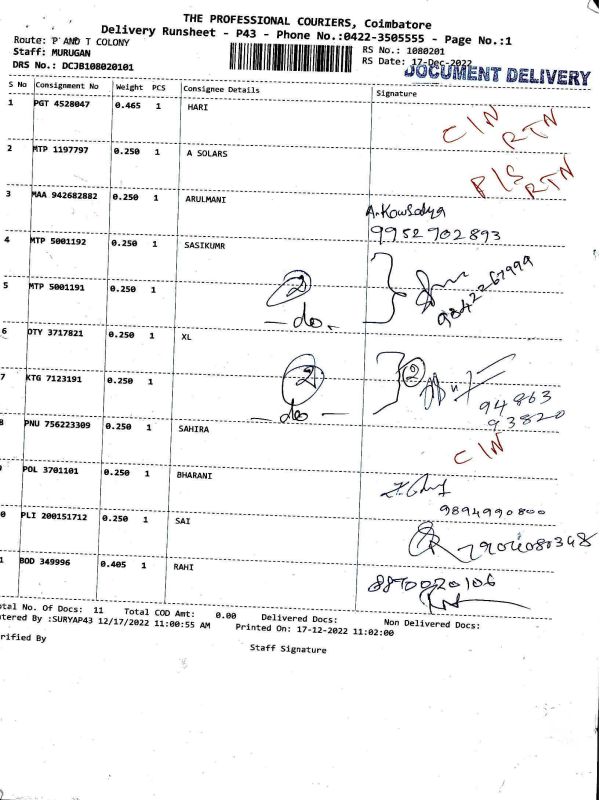 THE PROFESSIONAL COURIERS, Coimbatore
Delivery Runsheet - P43 - Phone No.:0422-3505555 - Page No.:1
Route: P AND T COLONY
RS No.: 1080201
Staff: MURUGAN
RS Date: 17-Dec-2022
DRS No.: DCJB108020101
DOCUMENT DELIVERY
S No Consignment No Weight PCS Consignee Details Signature
1 PGT 4528047 0.465 1 HARI C/N RTN
2 MTP 1197797 0.250 1 A SOLARS P/S RTN
3 MAA 942682882 0.250 1 ARULMANI A.Kowsalya
9952902893
4 MTP 5001192 0.250 1 SASIKUMR
5 MTP 5001191 0.250 1 2
- do. - 9842267999
6 OTY 3717821 0.250 1 XL 2
7 KTG 7123191 0.250 1 2
- do - 94863
93820
8 PNU 756223309 0.250 1 SAHIRA C/N
POL 3701101 0.250 1 BHARANI
9894990800
0 PLI 200151712 0.250 1 SAI
1 BOD 349996 0.405 1 RAHI 8870020106
otal No. Of Docs: 11 Total COD Amt: 0.00 Delivered Docs: Non Delivered Docs:
ntered By :SURYAP43 12/17/2022 11:00:55 AM Printed On: 17-12-2022 11:02:00
erified By
Staff Signature